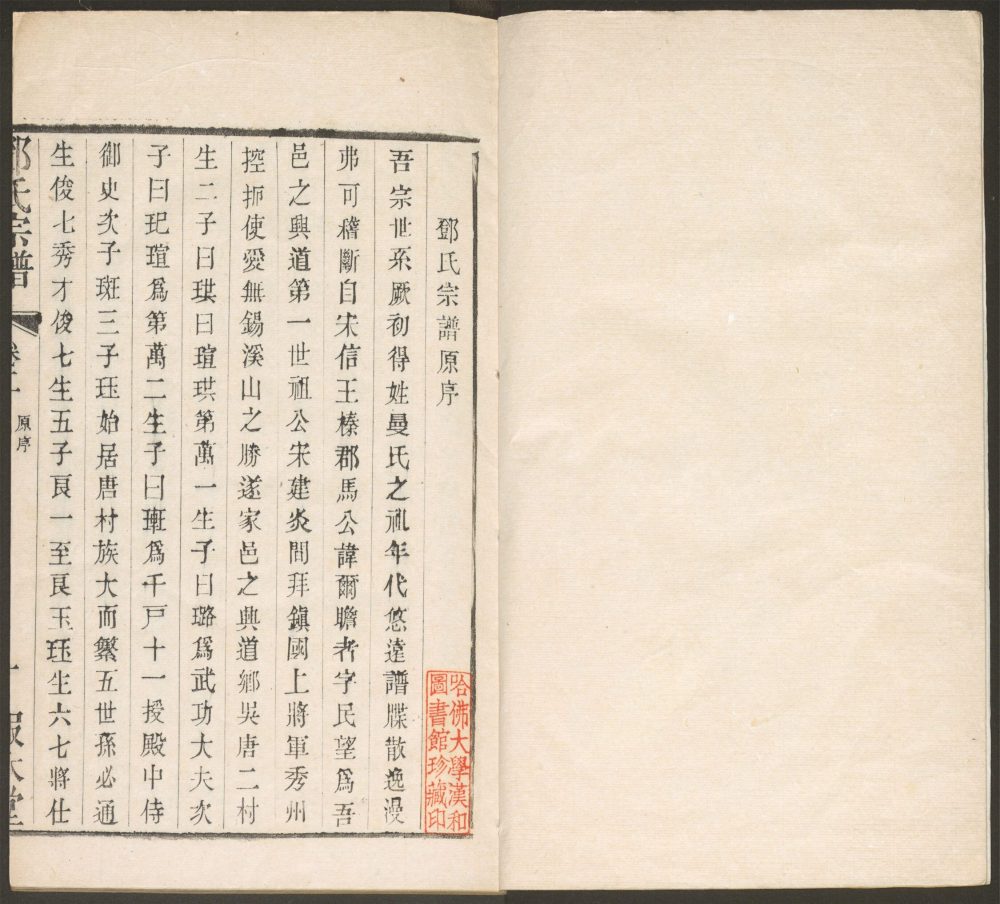 鄧氏宗譜原序
吾宗世系厥初得姓曼氏之祖年代悠遠譜牒散逸漫
弗可稽斷自宋信王榛郡馬公諱爾瞻者字民望爲吾
邑之興道第一世祖公宋建炎間拜鎭國上將軍秀州
控扼使愛無錫溪山之勝遂家邑之興道鄉吳唐二村
生二子曰珙曰瑄珙第萬一生子曰璐爲武功大夫次
子曰玘瑄爲第萬二生子曰璡爲千戸十一授殿中侍
御史次子斑三子珏始居唐村族大而繁五世孫必通
生俊七秀才俊七生五子良一至良五珏生六七將仕
鄧氏宗譜
卷
原序
一
報本堂
哈佛大學漢和
圖書館珍藏印